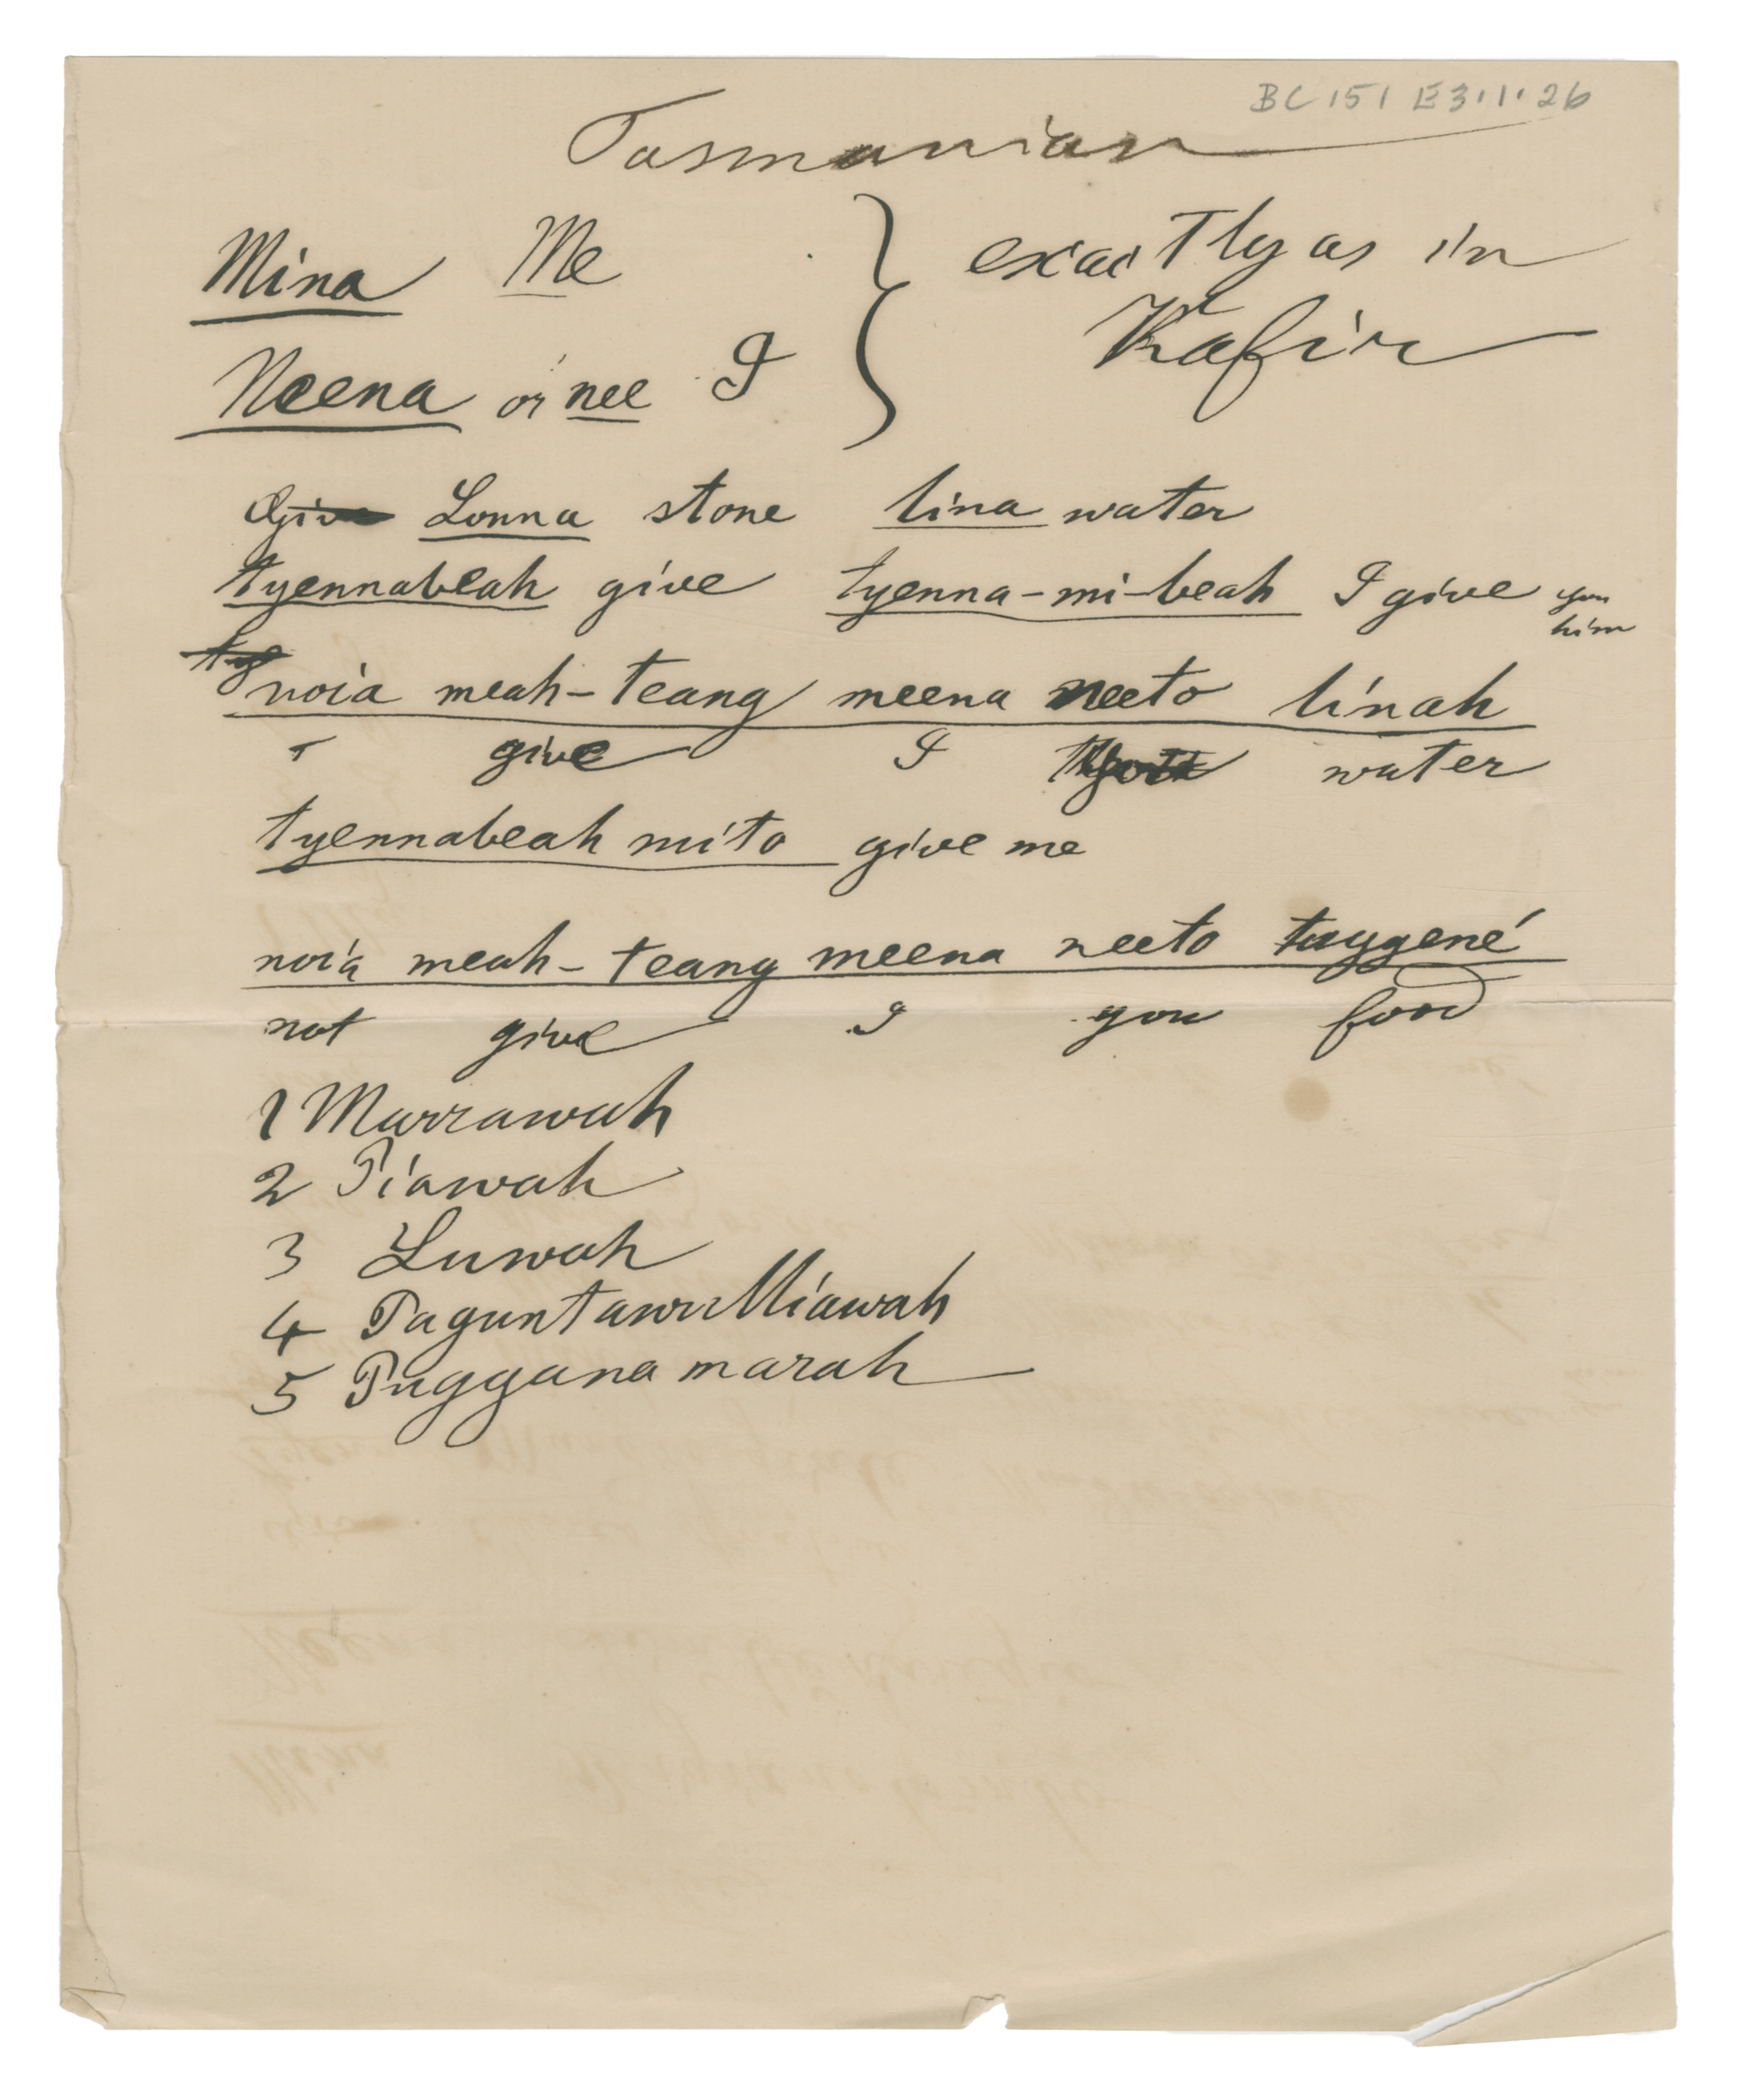 BC 151 E3.1.26
Tasmanian
Mina Me } exactly as in
Neena or nee I } Kafir
Give Lonna stone lina water
tyennabeah give tyenna-mi-beah I give you
him
ty noia meah-teang meena neeto linah
give I water
tyennabeah mito give me
noia meah-teang meena neeto tuggené
not give I you food
1 Marrawah
2 Piawah
3 Luwah
4 Pagunta Miawah
5 Puggana marah